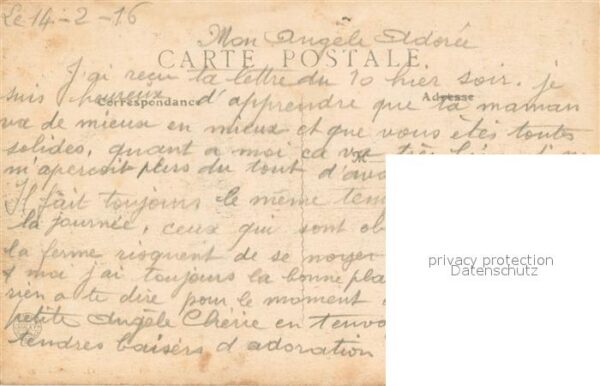 Le 14-2-16
Mon Angèle Adorée
CARTE POSTALE
J'ai reçu ta lettre du 10 hier soir. je
Correspondance
Adresse
suis heureux d'apprendre que ta maman
va de mieux en mieux et que vous êtes toutes
solides, quant a moi ça va très
m'aperçoit plus du tout
Il fait toujours le même
la journée, ceux qui sont
la ferme risquent de se noyer
moi j'ai toujours la bonne
rien a te dire pour le moment
petite Angèle Chérie en
tendres baisers d'adoration
privacy protection
Datenschutz